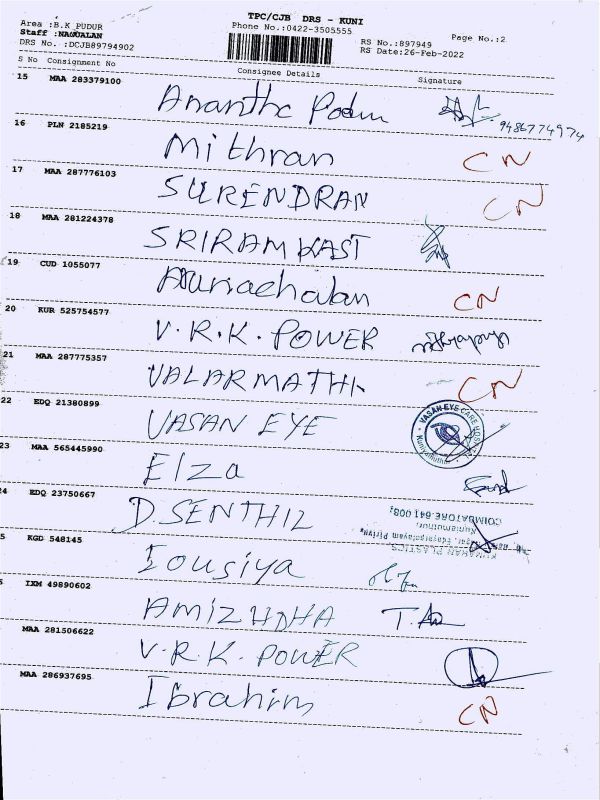 TPC/CJB DRS - KUNI
Area :B.K PUDUR
Phone No.:0422-3505555
Page No.:2
Staff :
DRS No. :DCJB89794902
RS No.:897949
RS Date:26-Feb-2022
S No Consignment No Consignee Details Signature
15 MAA 283379100
Anantha
9486774974
16 PLN 2185219
Mithran CN
17 MAA 287776103
SURENDRAN CN
18 MAA 281224378
SRIRAM KAST
19 CUD 1055077
CN
20 KUR 525754577
V.R.K. POWER
21 MAA 287775357
VALARMATHI CN
22 EDQ 21380899
VASAN EYE
VASAN EYE CARE HOSPITAL
Kuniamuthur
23 MAA 565445990
Elza
24 EDQ 23750667
D.SENTHIL
COIMBATORE-641 008
Kuniamuthur
PLASTICS
5 KGD 548145
Iousiya
IXM 49890602
AMIZHDHA
MAA 281506622
V.R.K. POWER
MAA 286937695
Ibrahim CN